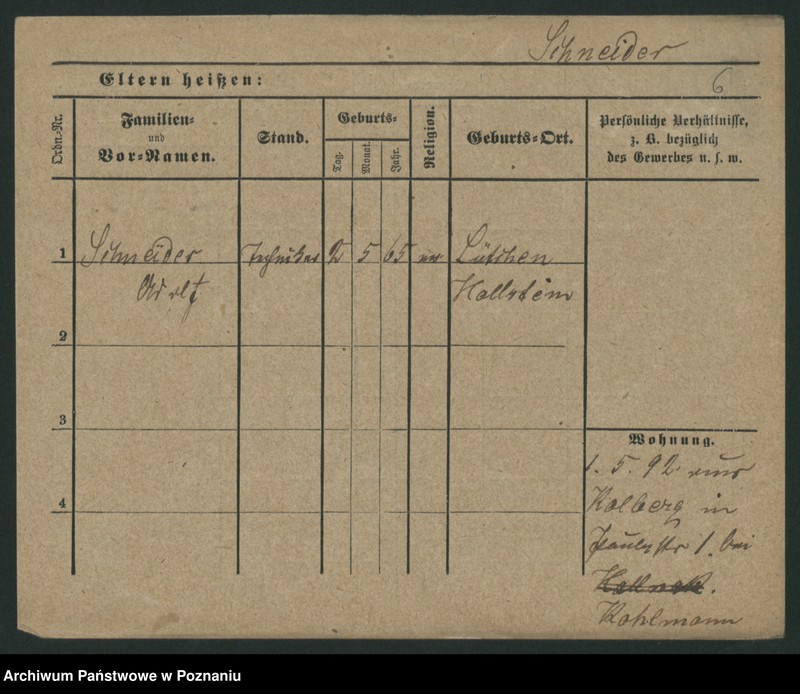 Schneider
Eltern heißen:
6
Ordn.-Nr.
Familien-
und
Vor-Namen.
Stand.
Geburts-
Tag.
Monat.
Jahr.
Religion.
Geburts-Ort.
Persönliche Verhältnisse,
z. B. bezüglich
des Gewerbes u. s. w.
1 Schneider Techniker 2 5 65 Lütchen
Adolf Hollstein
2
3
4
Wohnung.
1. 5. 92 aus
Kolberg in
Paulystr 1. bei
Kohlmann
Archiwum Państwowe w Poznaniu